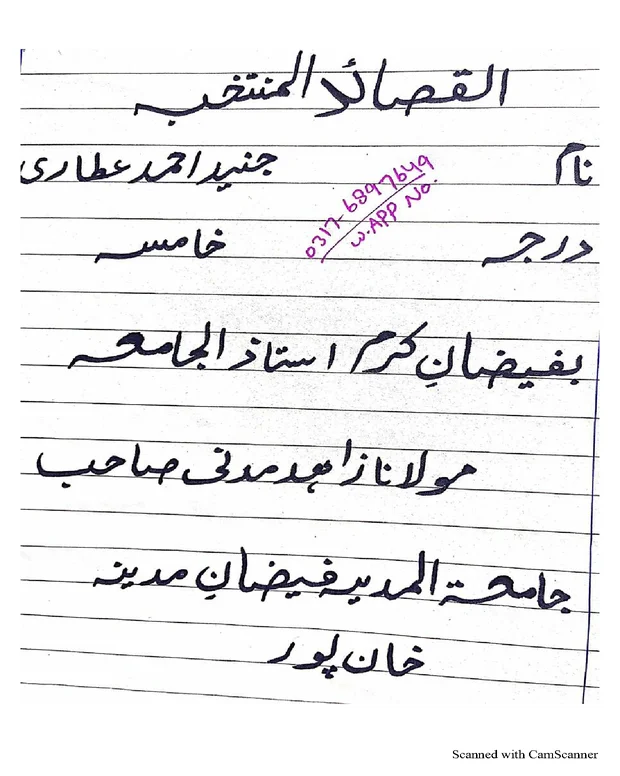 القصائد المنتخبہ
نام جنید احمد عطاری
0317-6897649
W.APP No.
درجہ خامسہ
بفیضانِ کرم استاذ الجامعہ
مولانا زاھد مدنی صاحب
جامعۃ المدینہ فیضانِ مدینہ
خان پور
Scanned with CamScanner